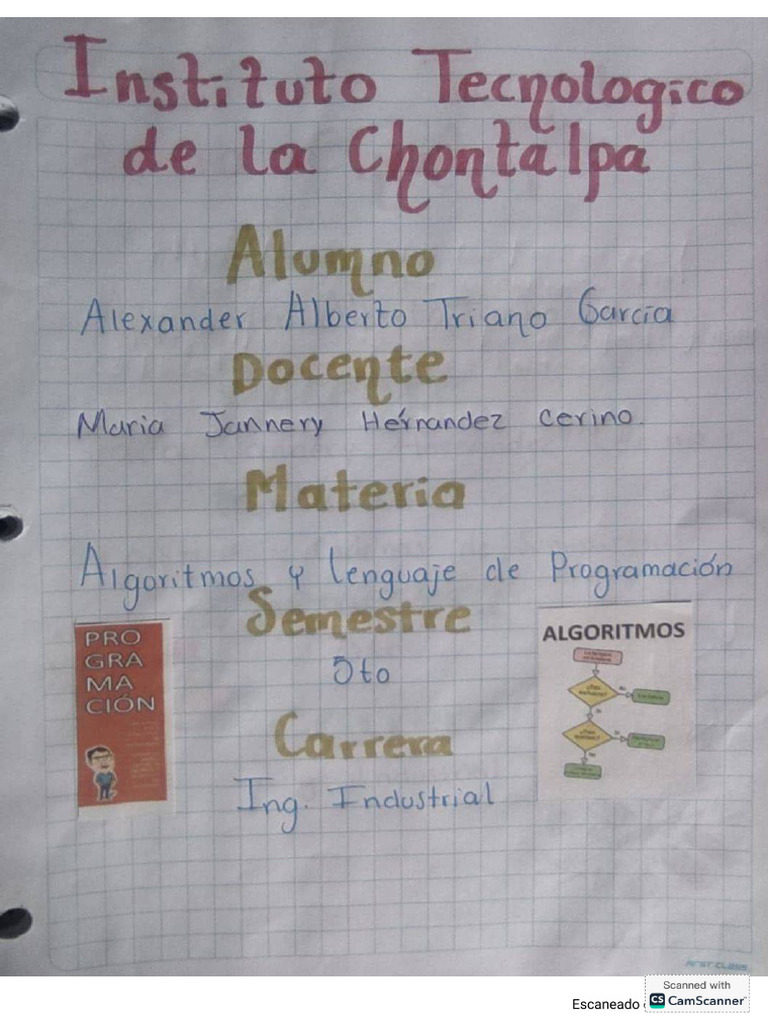 Instituto Tecnologico
de la Chontalpa
Alumno
Alexander Alberto Triano Garcia
Docente
Maria Jannery Hérnandez Cerino.
Materia
Algoritmos y lenguaje de Programación
Semestre
5to
Carrera
Ing. Industrial
PRO
GRA
MA
CIÓN
ALGORITMOS
FIRST CLASS
Scanned with
CS CamScanner
Escaneado